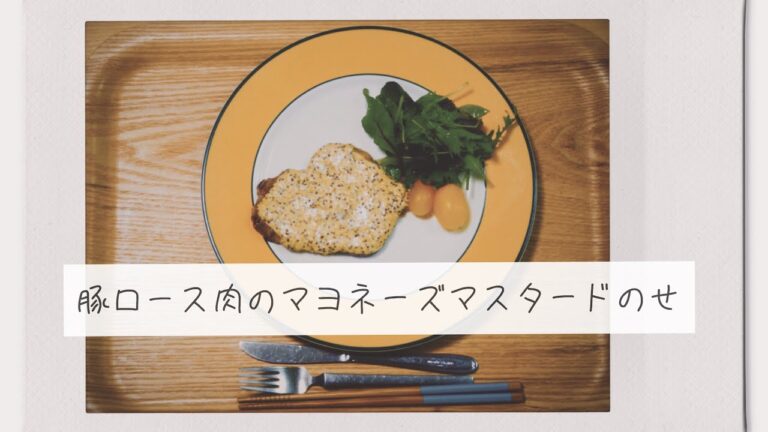 豚ロース肉のマヨネーズマスタードのせ